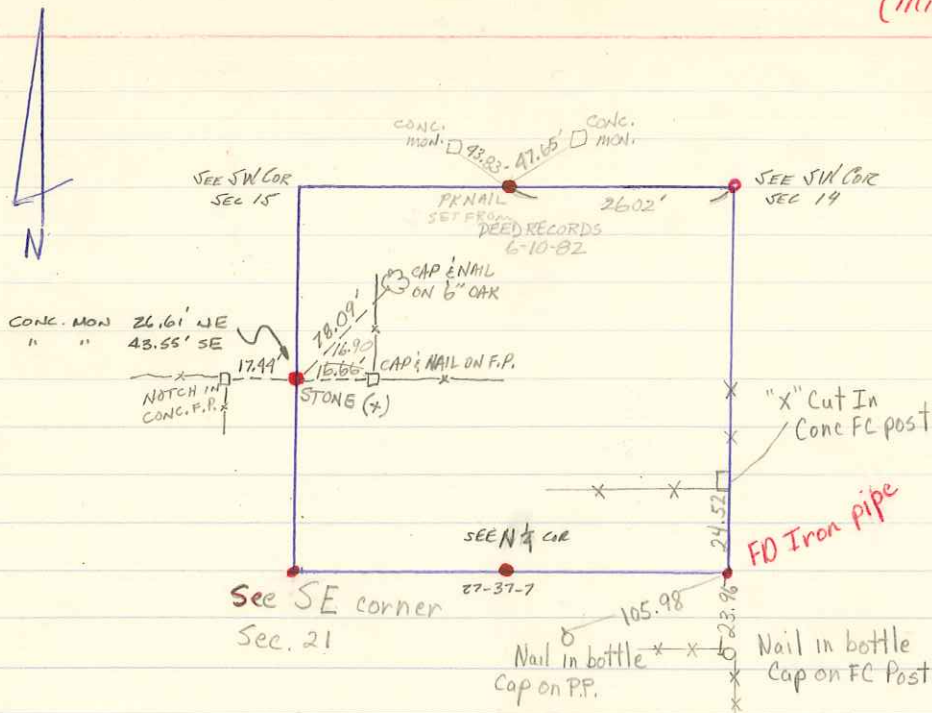 CONC.
MON.
CONC.
MON.
43.83
47.65'
SEE SW COR
SEC 15
SEE SW COR
SEC 14
PK NAIL
SET FROM
DEED RECORDS
6-10-82
2602'
N
CAP & NAIL
ON 6" OAK
CONC. MON 26.61' NE
" " 43.55' SE
16.90
17.44'
16.66'
CAP & NAIL ON F.P.
NOTCH IN
CONC. F.P.
STONE (+)
"X" Cut In
Conc FC post
24.52
FD Iron pipe
SEE N ¼ COR
27-37-7
See SE corner
Sec. 21
105.98
23.96
Nail in bottle
Cap on P.P.
Nail in bottle
Cap on FC Post